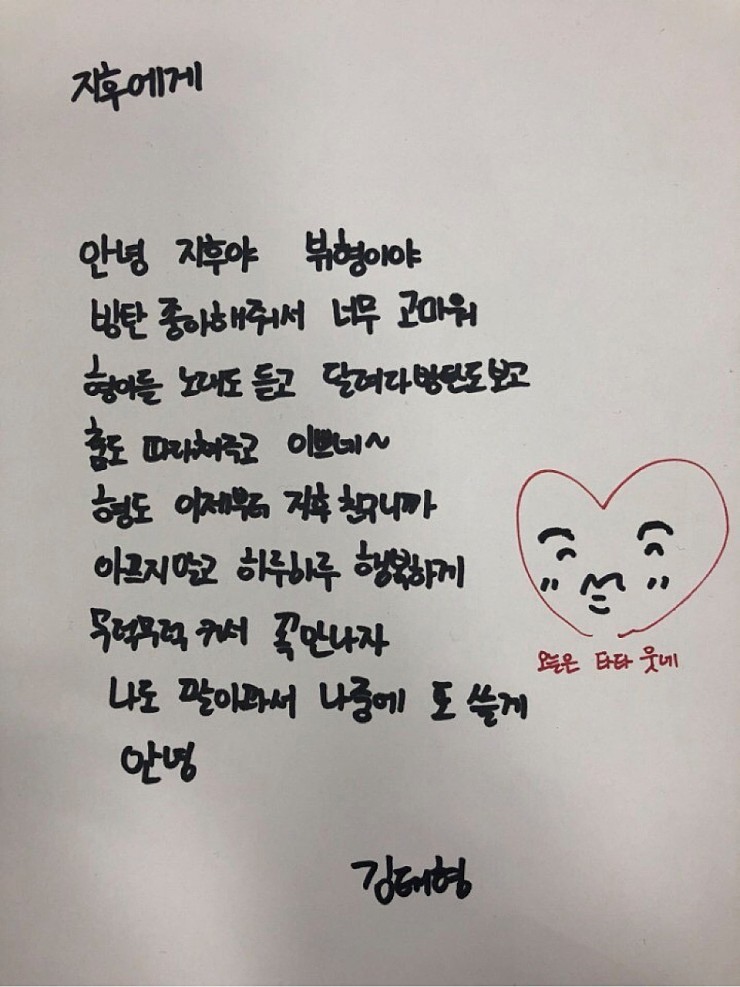 지후에게
안녕 지후야 뷔형이야
방탄 좋아해줘서 너무 고마워
형아들 노래도 듣고 달려라방탄도보고
춤도 따라춰주고 이쁘네~
형도 이제부터 지후친구니까
아프지말고 하루하루 행복하게
무럭무럭 커서 꼭만나자
나도 팔아파서 나중에 또 쓸게
안녕
김태형
오늘은 타타 웃네